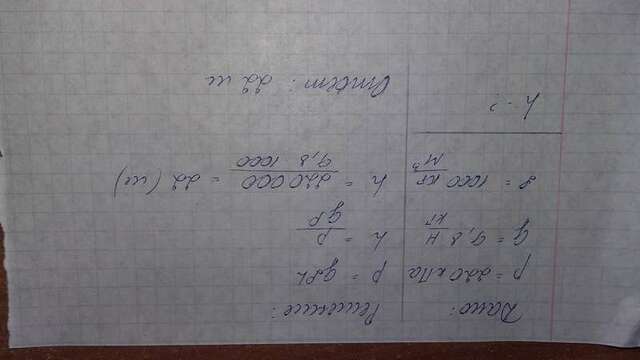 Дано:
p = 220 кПа
g = 9,8 Н/кг
ρ = 1000 кг/м³
h - ?
Решение:
p = gρh
h = p/gρ
h = 220000/9,8 1000 = 22 (м)
Ответ: 22 м